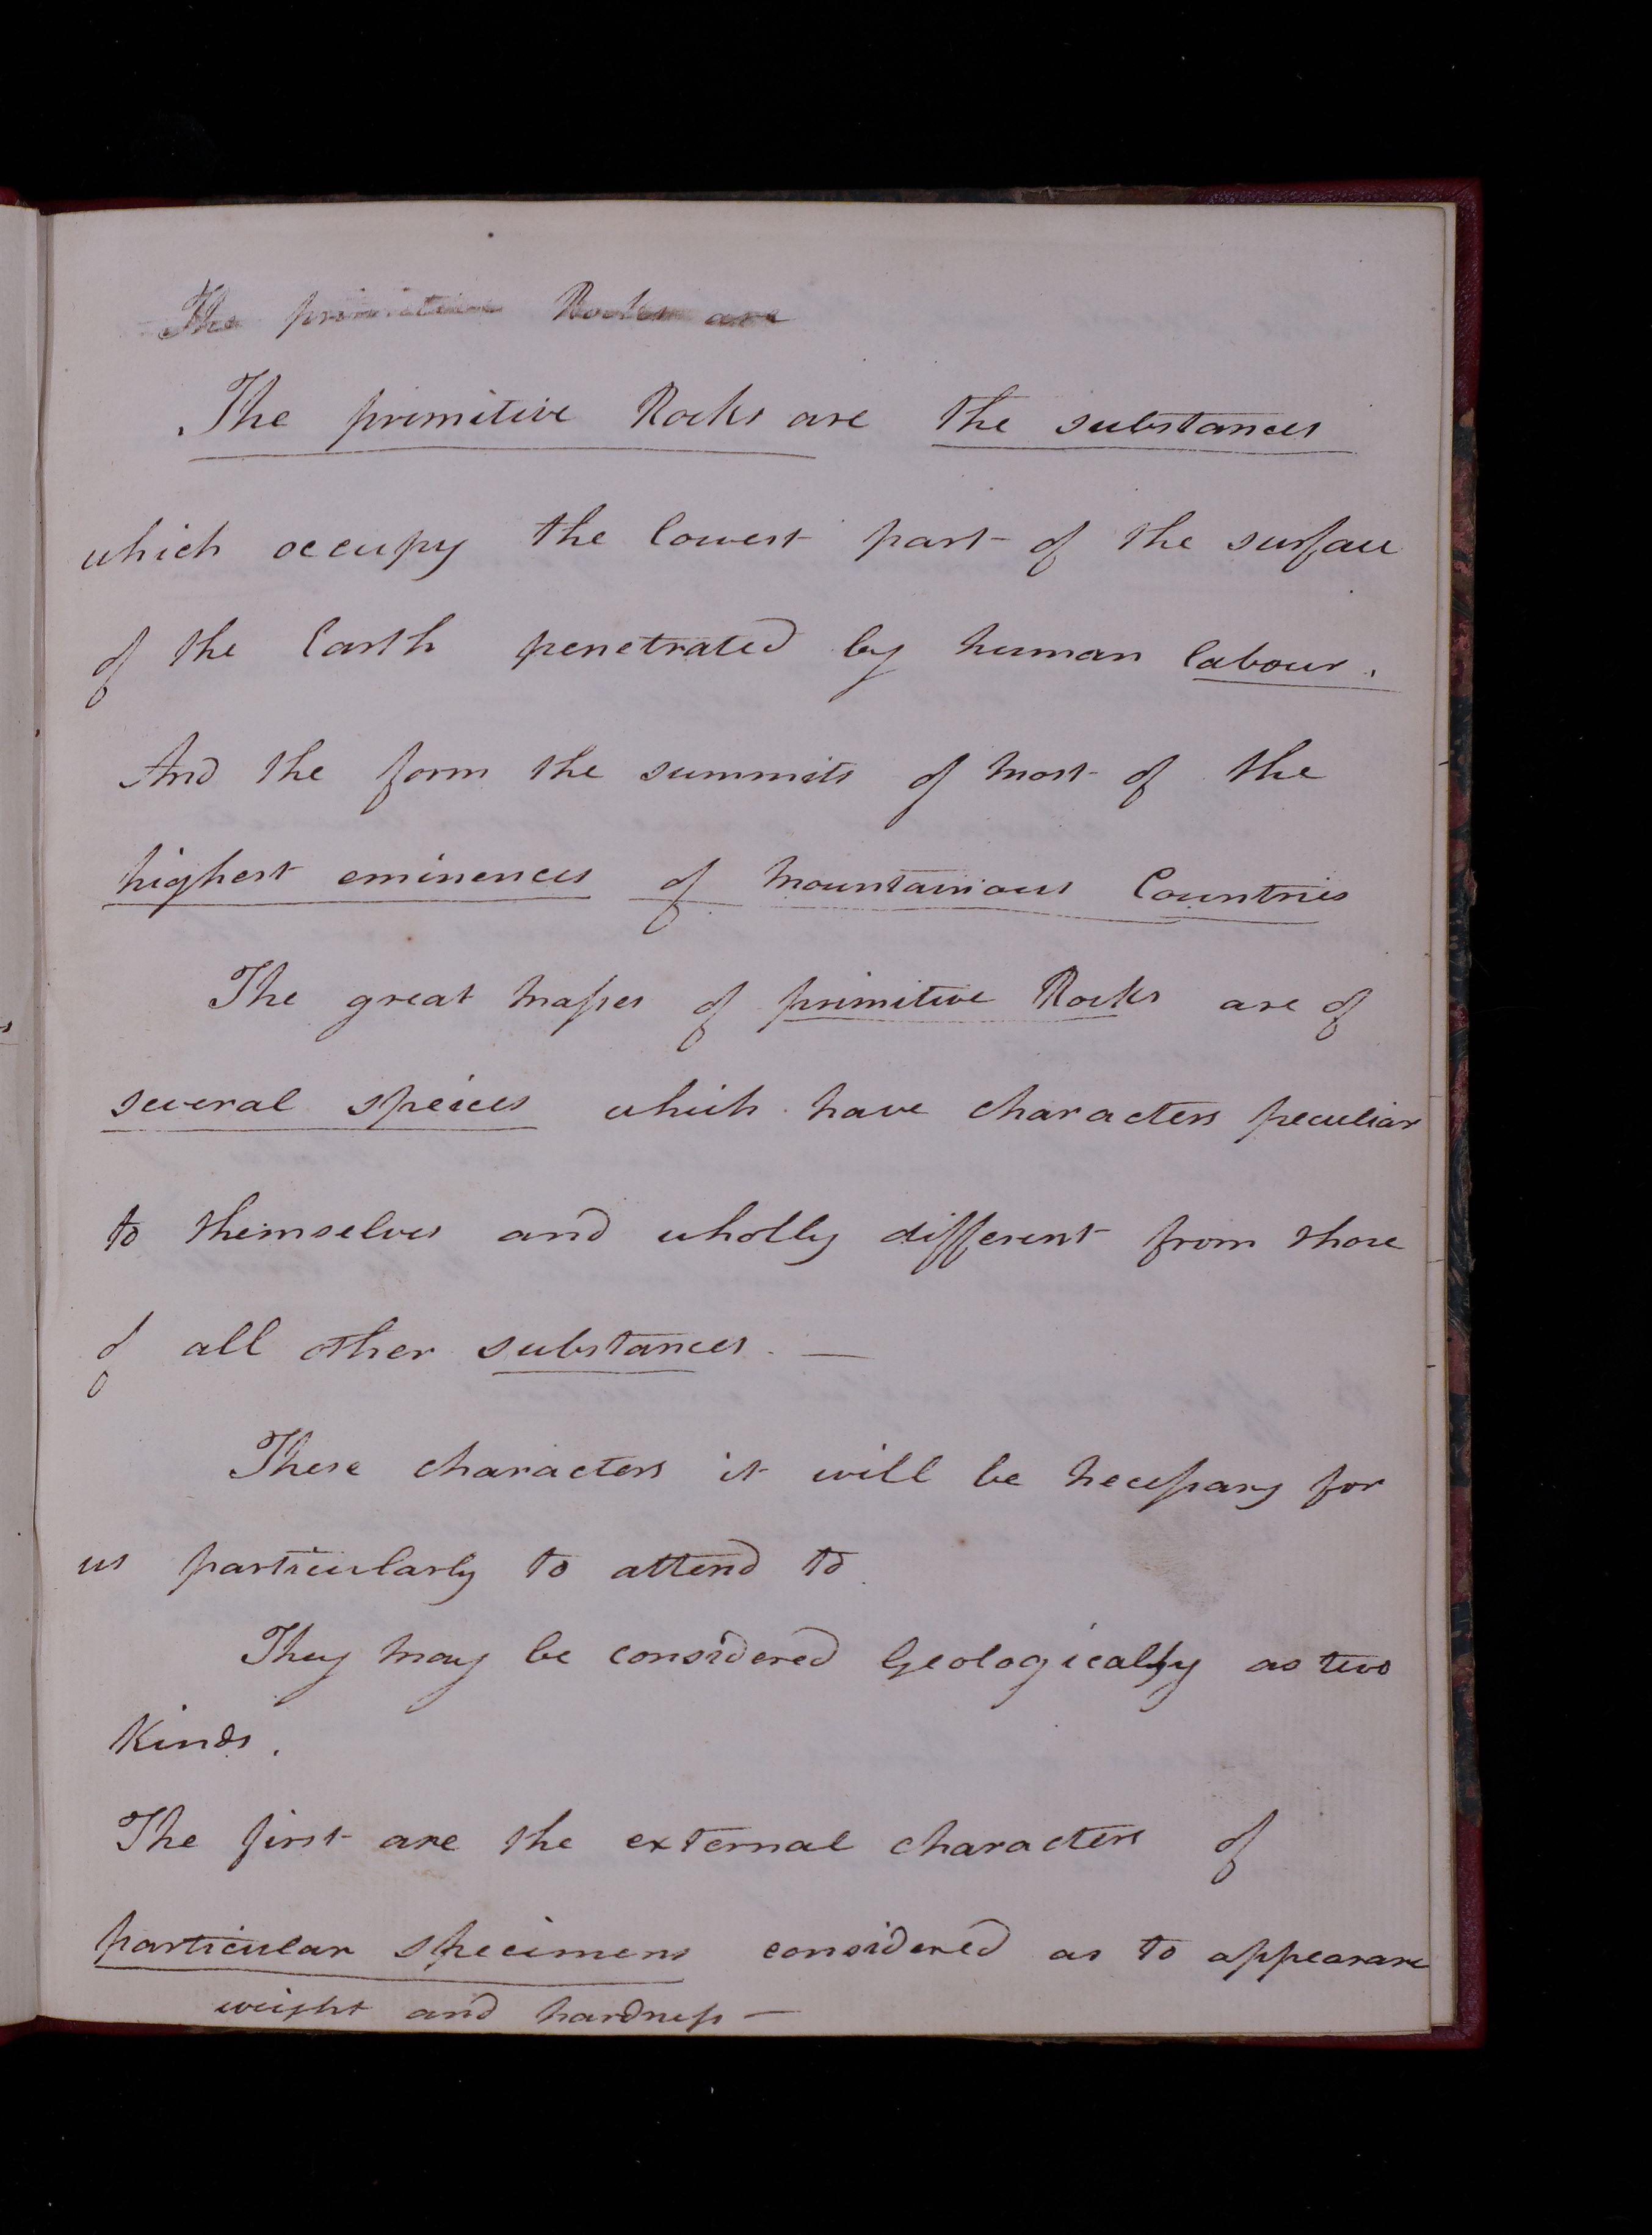 The primitive Rocks are
The primitive Rocks are the substances
which occupy the lowest part of the surface
of the Earth penetrated by human labour.
And the form the summits of most of the
highest eminences of mountainous Countries
The great masses of primitive Rocks are of
several speices which have characters peculiar
to themselves and wholly different from those
of all other substances. —
These characters it will be necessary for
us particularly to attend to.
They may be considered Geologically as two
Kinds.
The first are the external characters of
particular specimens considered as to appearance
weight and hardness —